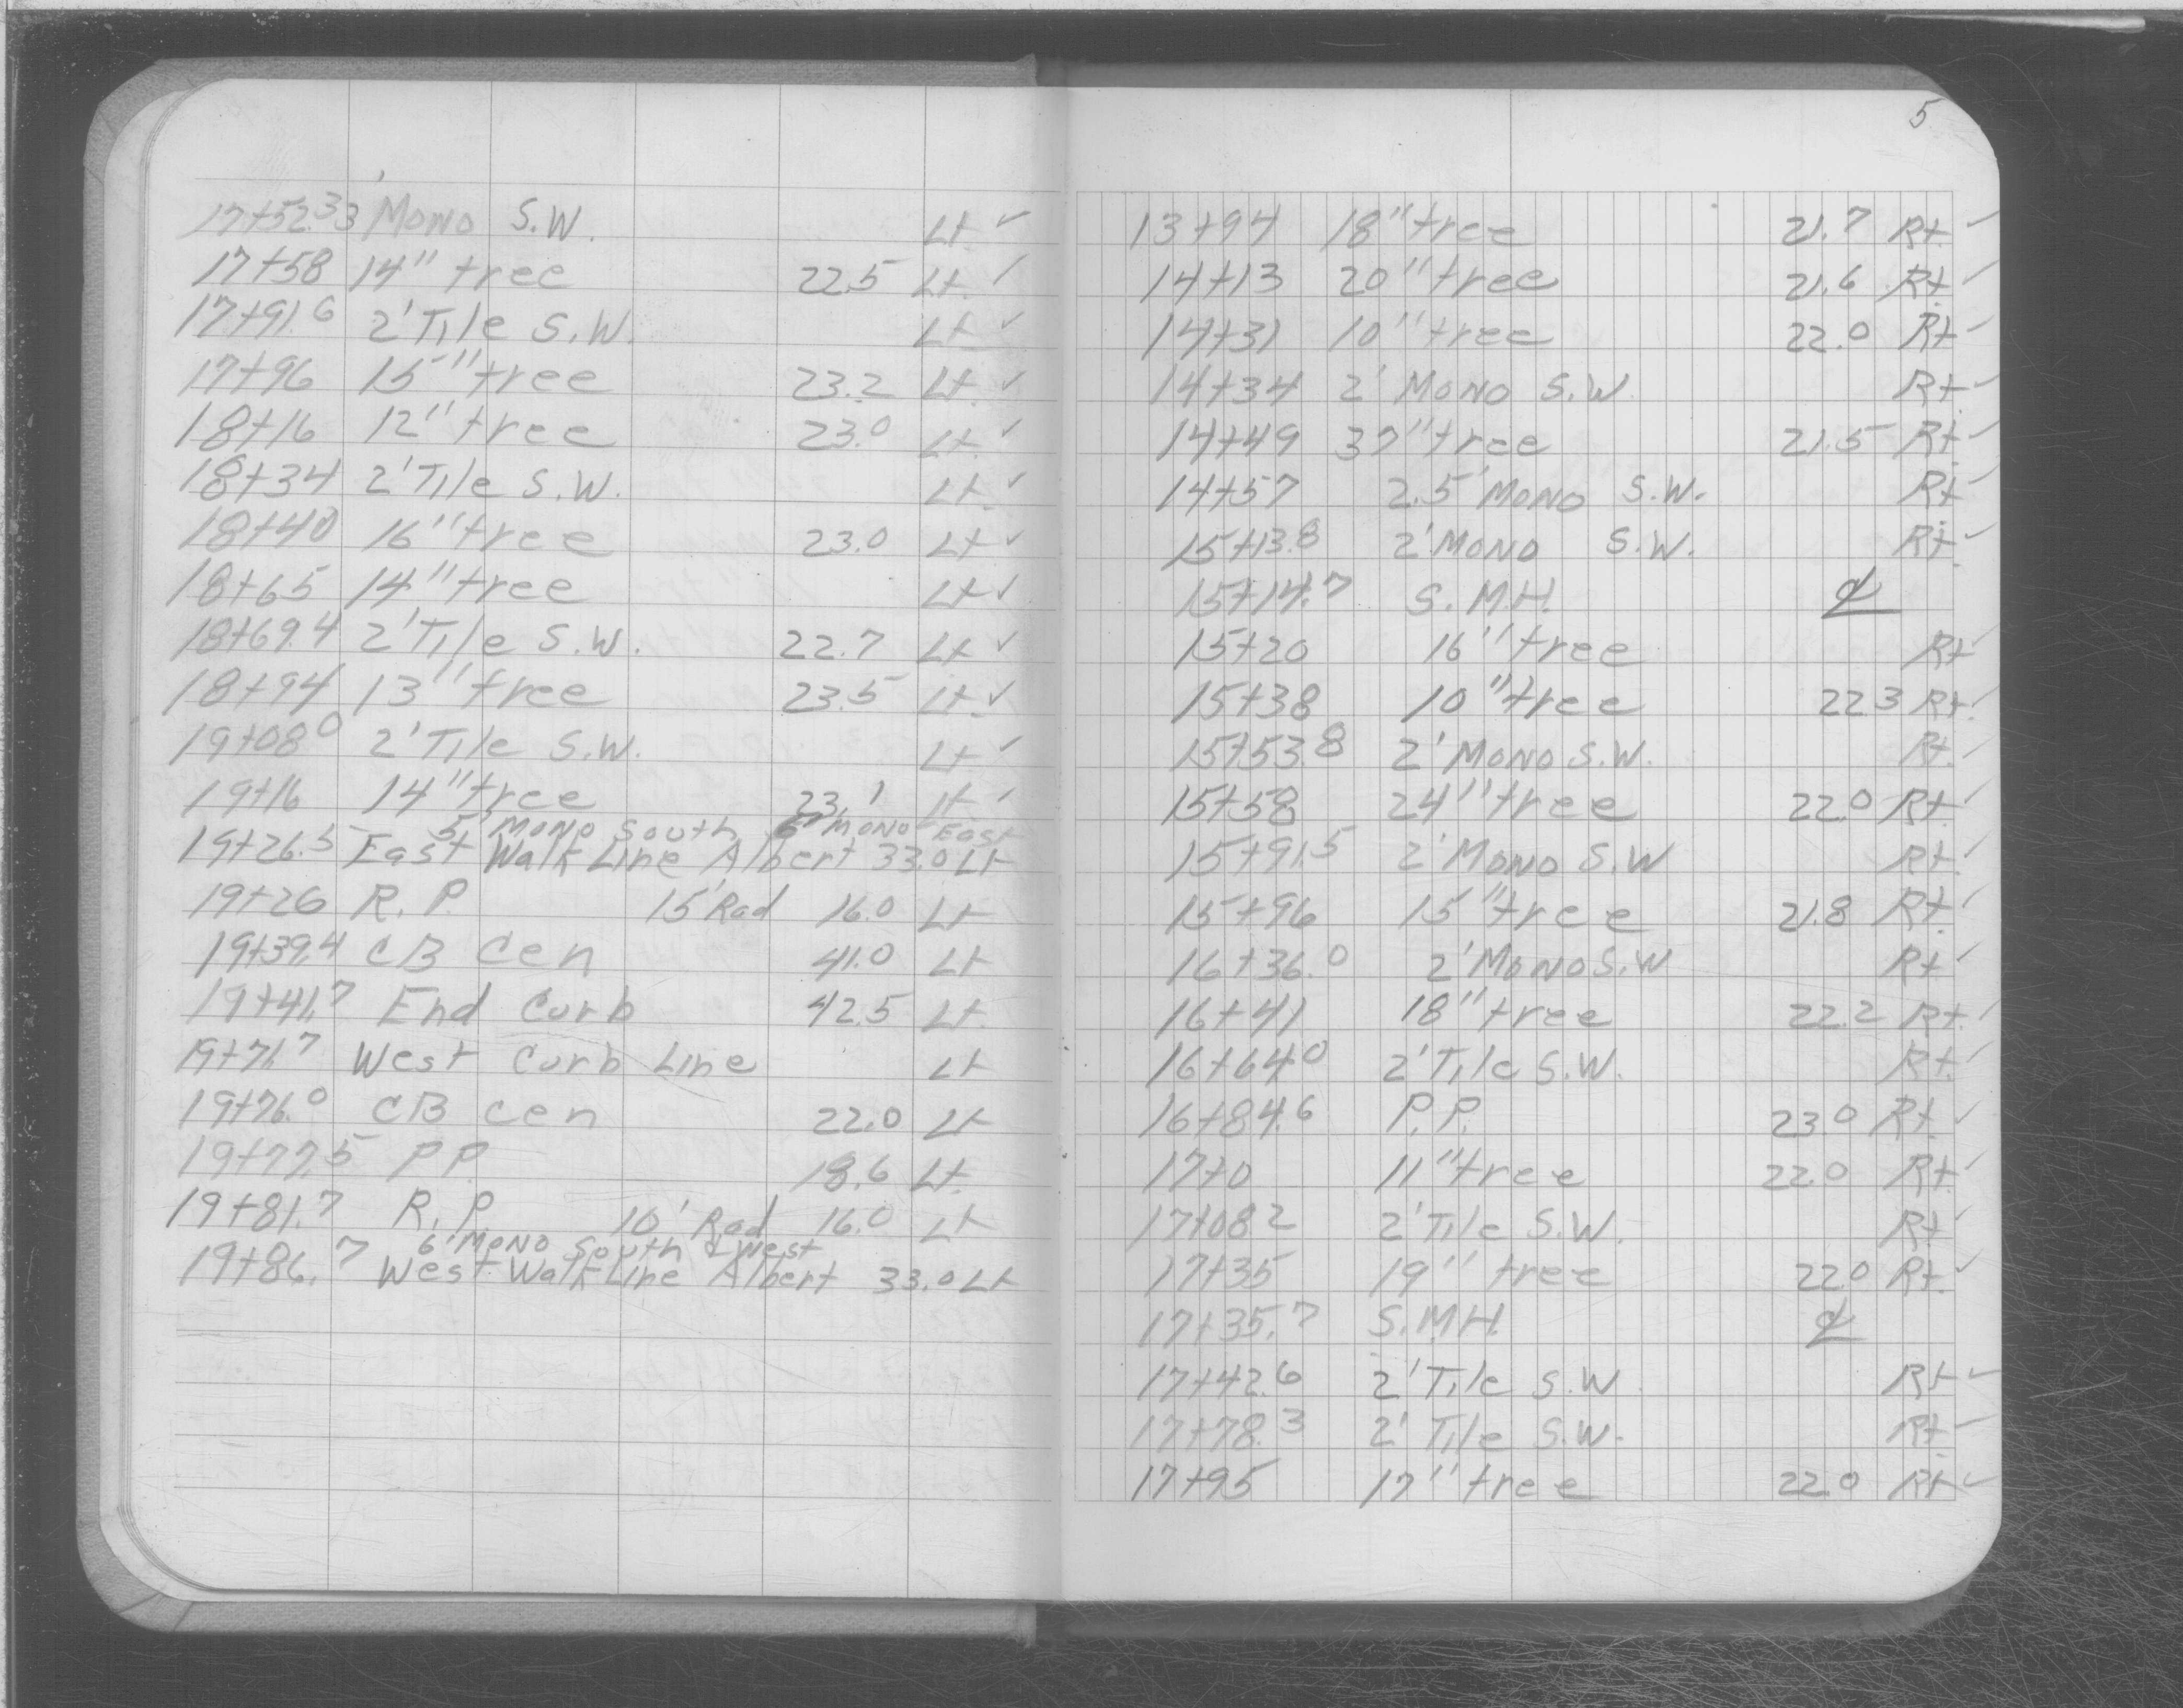 17+52.3 3' Mono S.W. Lt. ✓
17+58 14" tree 22.5 Lt. ✓
17+91.6 2' Tile S.W. Lt ✓
17+96 15" tree 23.2 Lt. ✓
18+16 12" tree 23.0 Lt. ✓
18+34 2' Tile S.W. Lt. ✓
18+40 16" tree 23.0 Lt ✓
18+65 14" tree Lt ✓
18+69.4 2' Tile S.W. 22.7 Lt ✓
18+94 13" tree 23.5 Lt. ✓
19+08.0 2' Tile S.W. Lt ✓
19+16 14" tree 23.1 Lt. ✓
5' Mono South 6' Mono East
19+26.5 East Walk Line Albert 33.0 Lt
19+26 R.P. 15' Rad 16.0 Lt
19+39.4 CB Cen 41.0 Lt
19+41.7 End Curb 42.5 Lt.
19+71.7 West Curb Line Lt
19+76.0 CB Cen 22.0 Lt
19+77.5 P.P. 18.6 Lt.
19+81.7 R.P. 10' Rad 16.0 Lt
6' Mono South & West
19+86.7 West Walk Line Albert 33.0 Lt
5
13+94 18" tree 21.7 Rt. ✓
14+13 20" tree 21.6 Rt. ✓
14+31 10" tree 22.0 Rt ✓
14+34 2' Mono S.W. Rt. ✓
14+49 37" tree 21.5 Rt. ✓
14+57 2.5' Mono S.W. Rt. ✓
15+13.8 2' Mono S.W. Rt. ✓
15+14.7 S.M.H. ℄
15+20 16" tree Rt ✓
15+38 10" tree 22.3 Rt. ✓
15+53.8 2' Mono S.W. Rt. ✓
15+58 24" tree 22.0 Rt. ✓
15+91.5 2' Mono S.W Rt. ✓
15+96 15" tree 21.8 Rt. ✓
16+36.0 2' Mono S.W Rt ✓
16+41 18" tree 22.2 Rt. ✓
16+64.0 2' Tile S.W. Rt. ✓
16+84.6 P.P. 23.0 Rt. ✓
17+0 11" tree 22.0 Rt. ✓
17+08.2 2' Tile S.W. Rt ✓
17+35 19" tree 22.0 Rt. ✓
17+35.7 S.M.H. ℄
17+42.6 2' Tile S.W. Rt ✓
17+78.3 2' Tile S.W. Rt. ✓
17+95 17" tree 22.0 Rt ✓